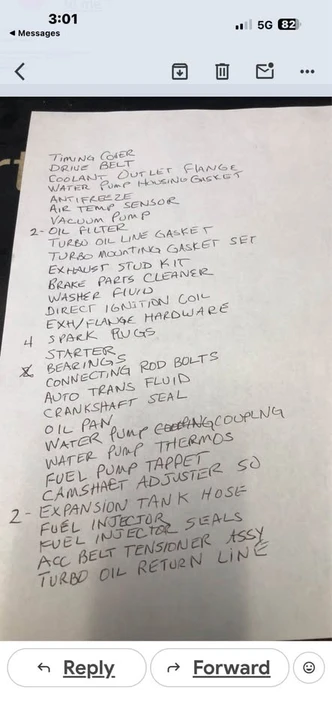 3:01
5G 82
◄ Messages
TIMING COVER
DRIVE BELT
COOLANT OUTLET FLANGE
WATER PUMP HOUSING GASKET
ANTIFREEZE
AIR TEMP SENSOR
VACUUM PUMP
2- OIL FILTER
TURBO OIL LINE GASKET
TURBO MOUNTING GASKET SET
EXHAUST STUD KIT
BRAKE PARTS CLEANER
WASHER FLUID
DIRECT IGNITION COIL
EXH/FLANGE HARDWARE
4 SPARK PLUGS
STARTER
BEARINGS
CONNECTING ROD BOLTS
AUTO TRANS FLUID
CRANKSHAFT SEAL
OIL PAN
WATER PUMP COUPLNG
WATER PUMP THERMOS
FUEL PUMP TAPPET
CAMSHAFT ADJUSTER SO
2- EXPANSION TANK HOSE
FUEL INJECTOR
FUEL INJECTOR SEALS
ACC BELT TENSIONER ASSY
TURBO OIL RETURN LINE
Reply
Forward